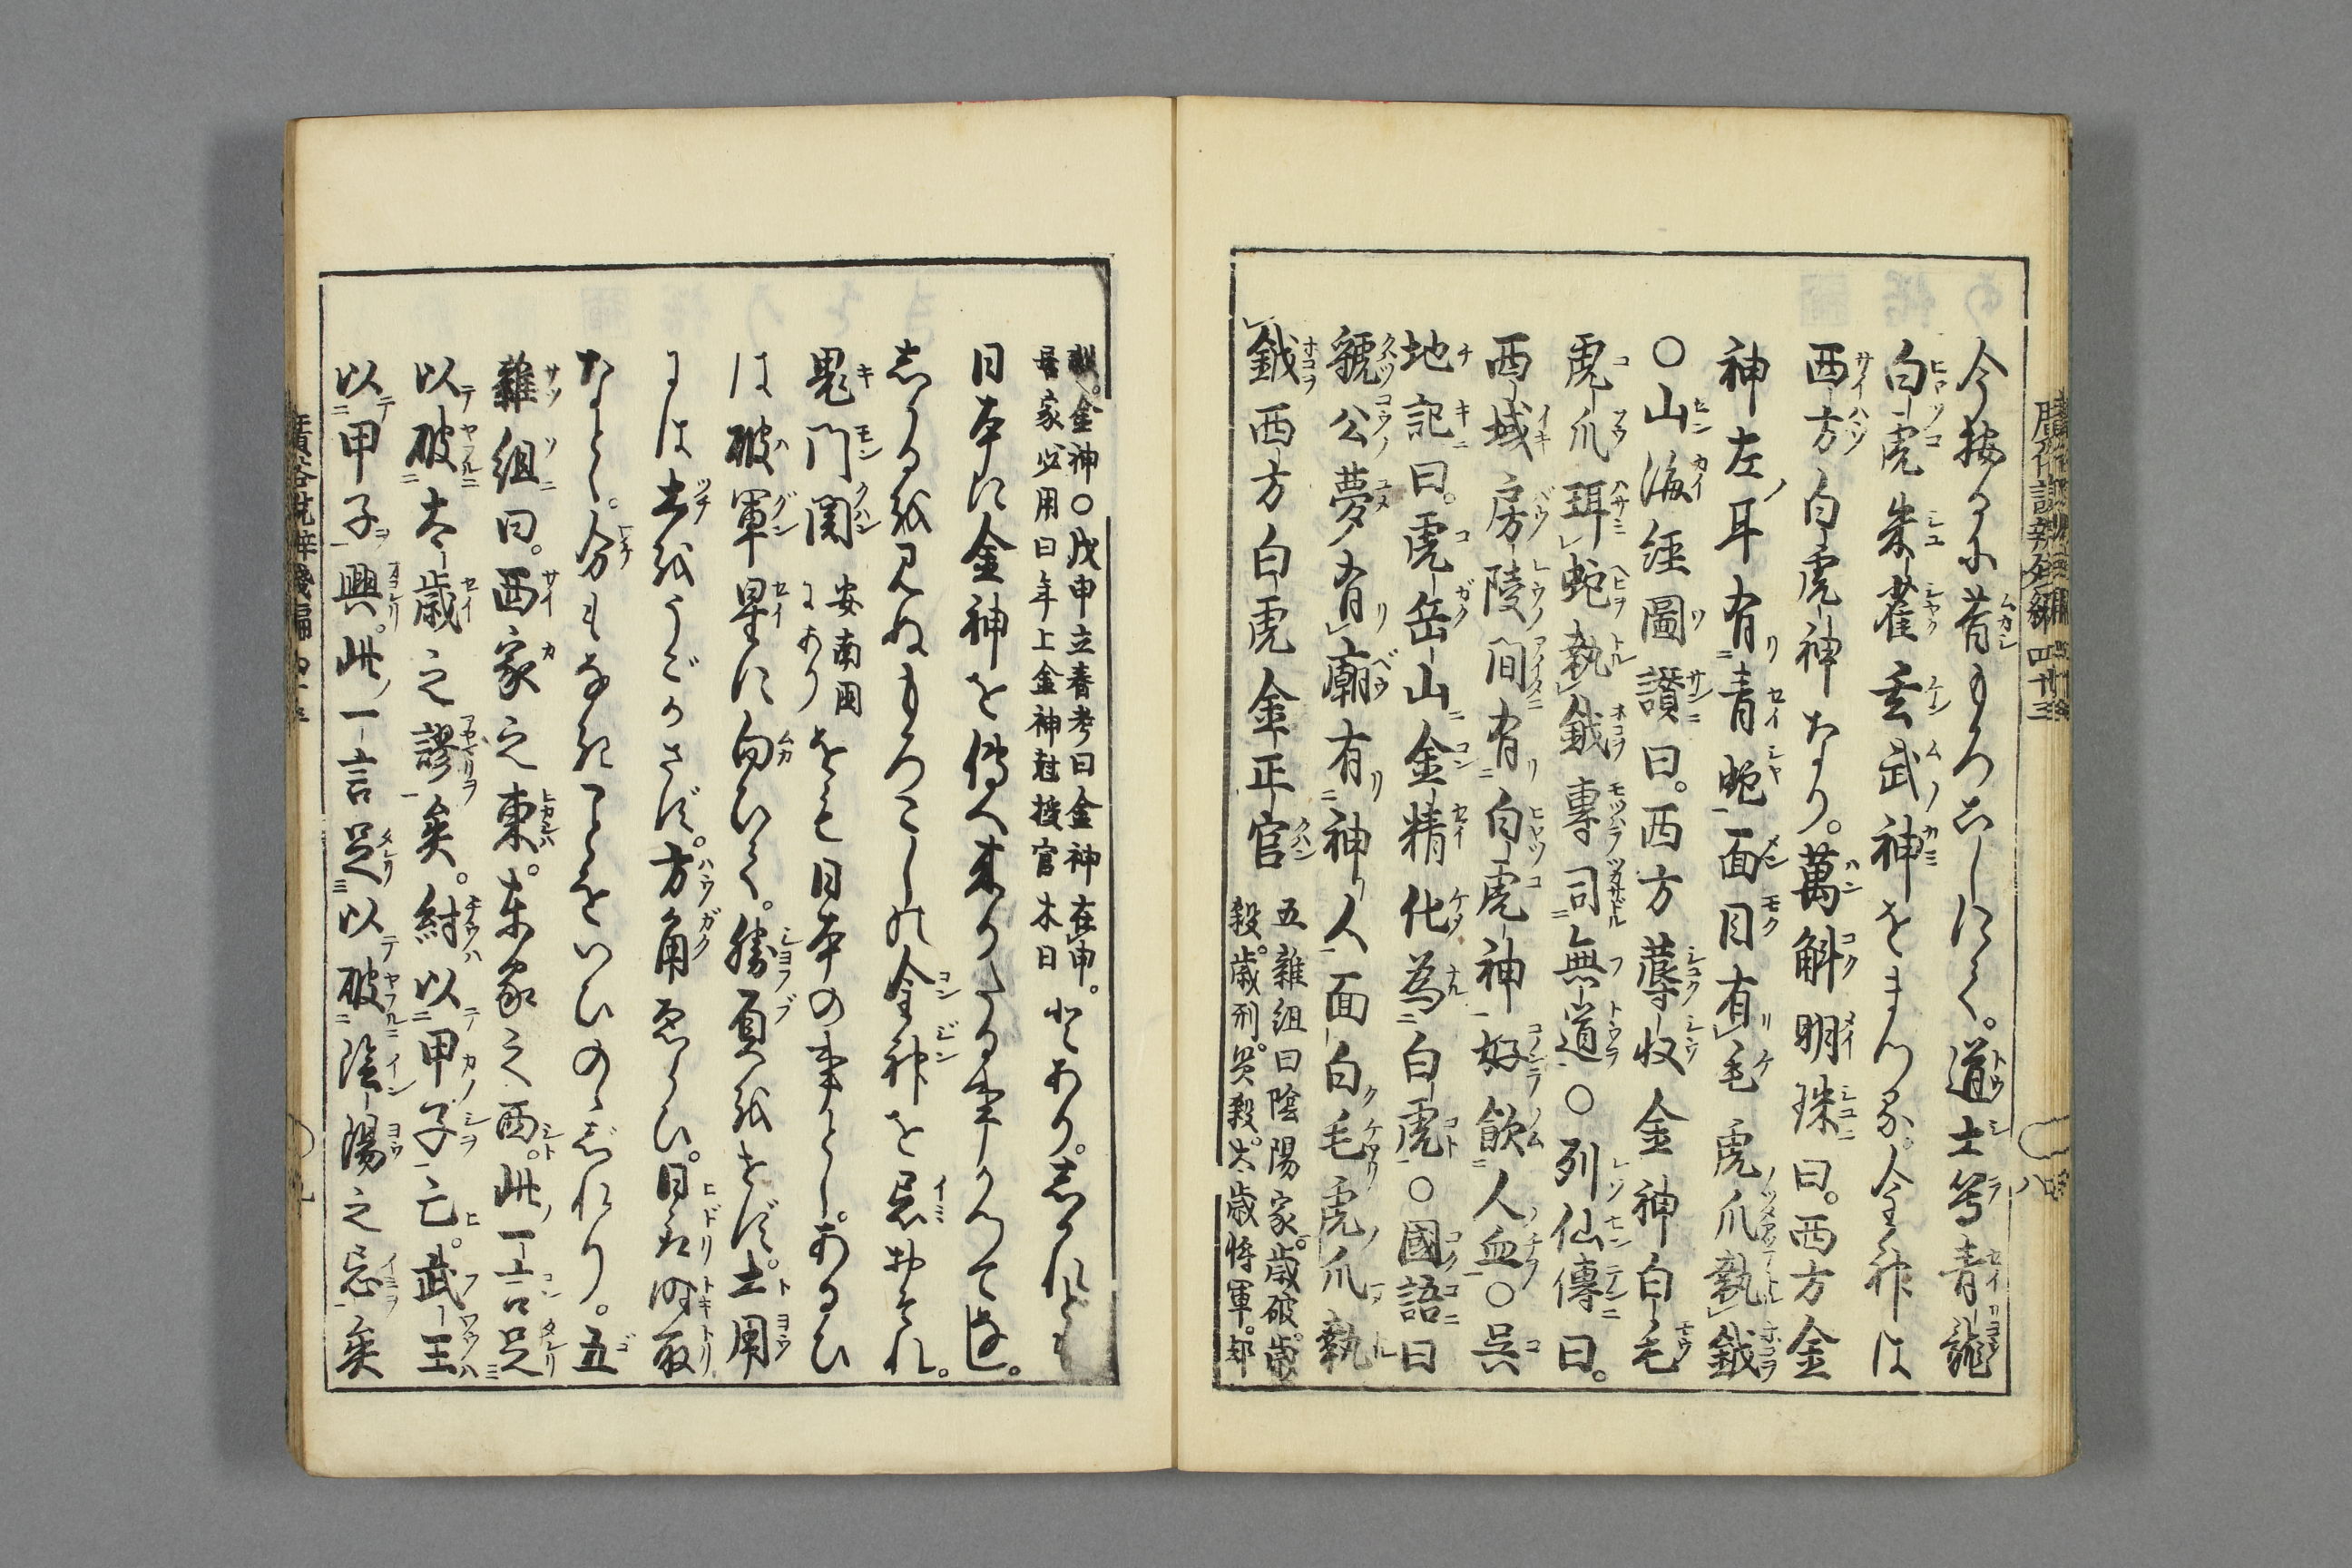 今按るに昔もろこしにて。道士等青龍
白虎朱雀玄武神をまつる。金神は
西方白虎神なり。萬斛明珠曰。西方金
神左耳有青蛇面目有毛虎爪執鉞
〇山海經圖讃曰。西方蓐収金神白毛
虎爪珥蛇執鉞專司無道〇列仙傳曰。
西域房陵間有白虎神好飲人血〇呉
地記曰。虎岳山金精化為白虎〇國語曰
虢公夢有廟有神人面白毛虎爪執
鉞西方白虎金正官
五雜組曰陰陽家。歲破。歲
殺。歲刑。災殺。太歲将軍。却
殺。金神〇戊申立春考曰金神在申。
居家必用曰年上金神尅授官本日
とあり。しかれども
日本に金神を傳へ來りたる事かつてなし。
しかるを又ぬもろこしの金神を忌おそれ。
鬼門関
安南国
にあり
をも日本の事とし。あるひ
は破軍星に向ひて。勝負をせず。土用
には土をうごかさず。方角をえらひ。日取時取
なとし。分もなきことをいひのゝしれり。五
雜組曰。西家之東。東家之西。此一言足
以破太歳之謬矣。紂以甲子亡。武王
以甲子興。此一言足以破陰陽之忌矣